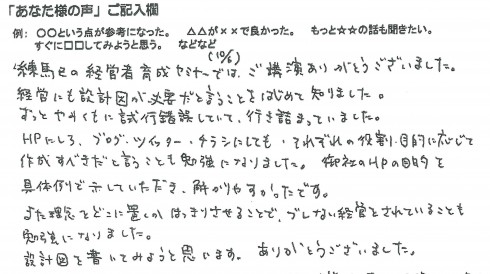 「あなた様の声」ご記入欄
例： 〇〇という点が参考になった。 △△が××で良かった。 もっと☆☆の話も聞きたい。
すぐに□□してみようと思う。 などなど
(10/6)
練馬区の経営者育成セミナーでは、ご講演ありがとうございました。
経営にも設計図が必要だと言うことをはじめて知りました。
ずっとやみくもに試行錯誤していて、行き詰まっていました。
HPにしろ、ブログ・ツイッター・チラシにしても・それぞれの役割・目的に応じて
作成すべきだと言うことも勉強になりました。 御社のHPの目的を
具体例で示していただき、解かりやすかったです。
また理念をどこに置くか はっきりさせることで、ブレない経営とされていることも
勉強になりました。
設計図を書いてみようと思います。 ありがとうございました。